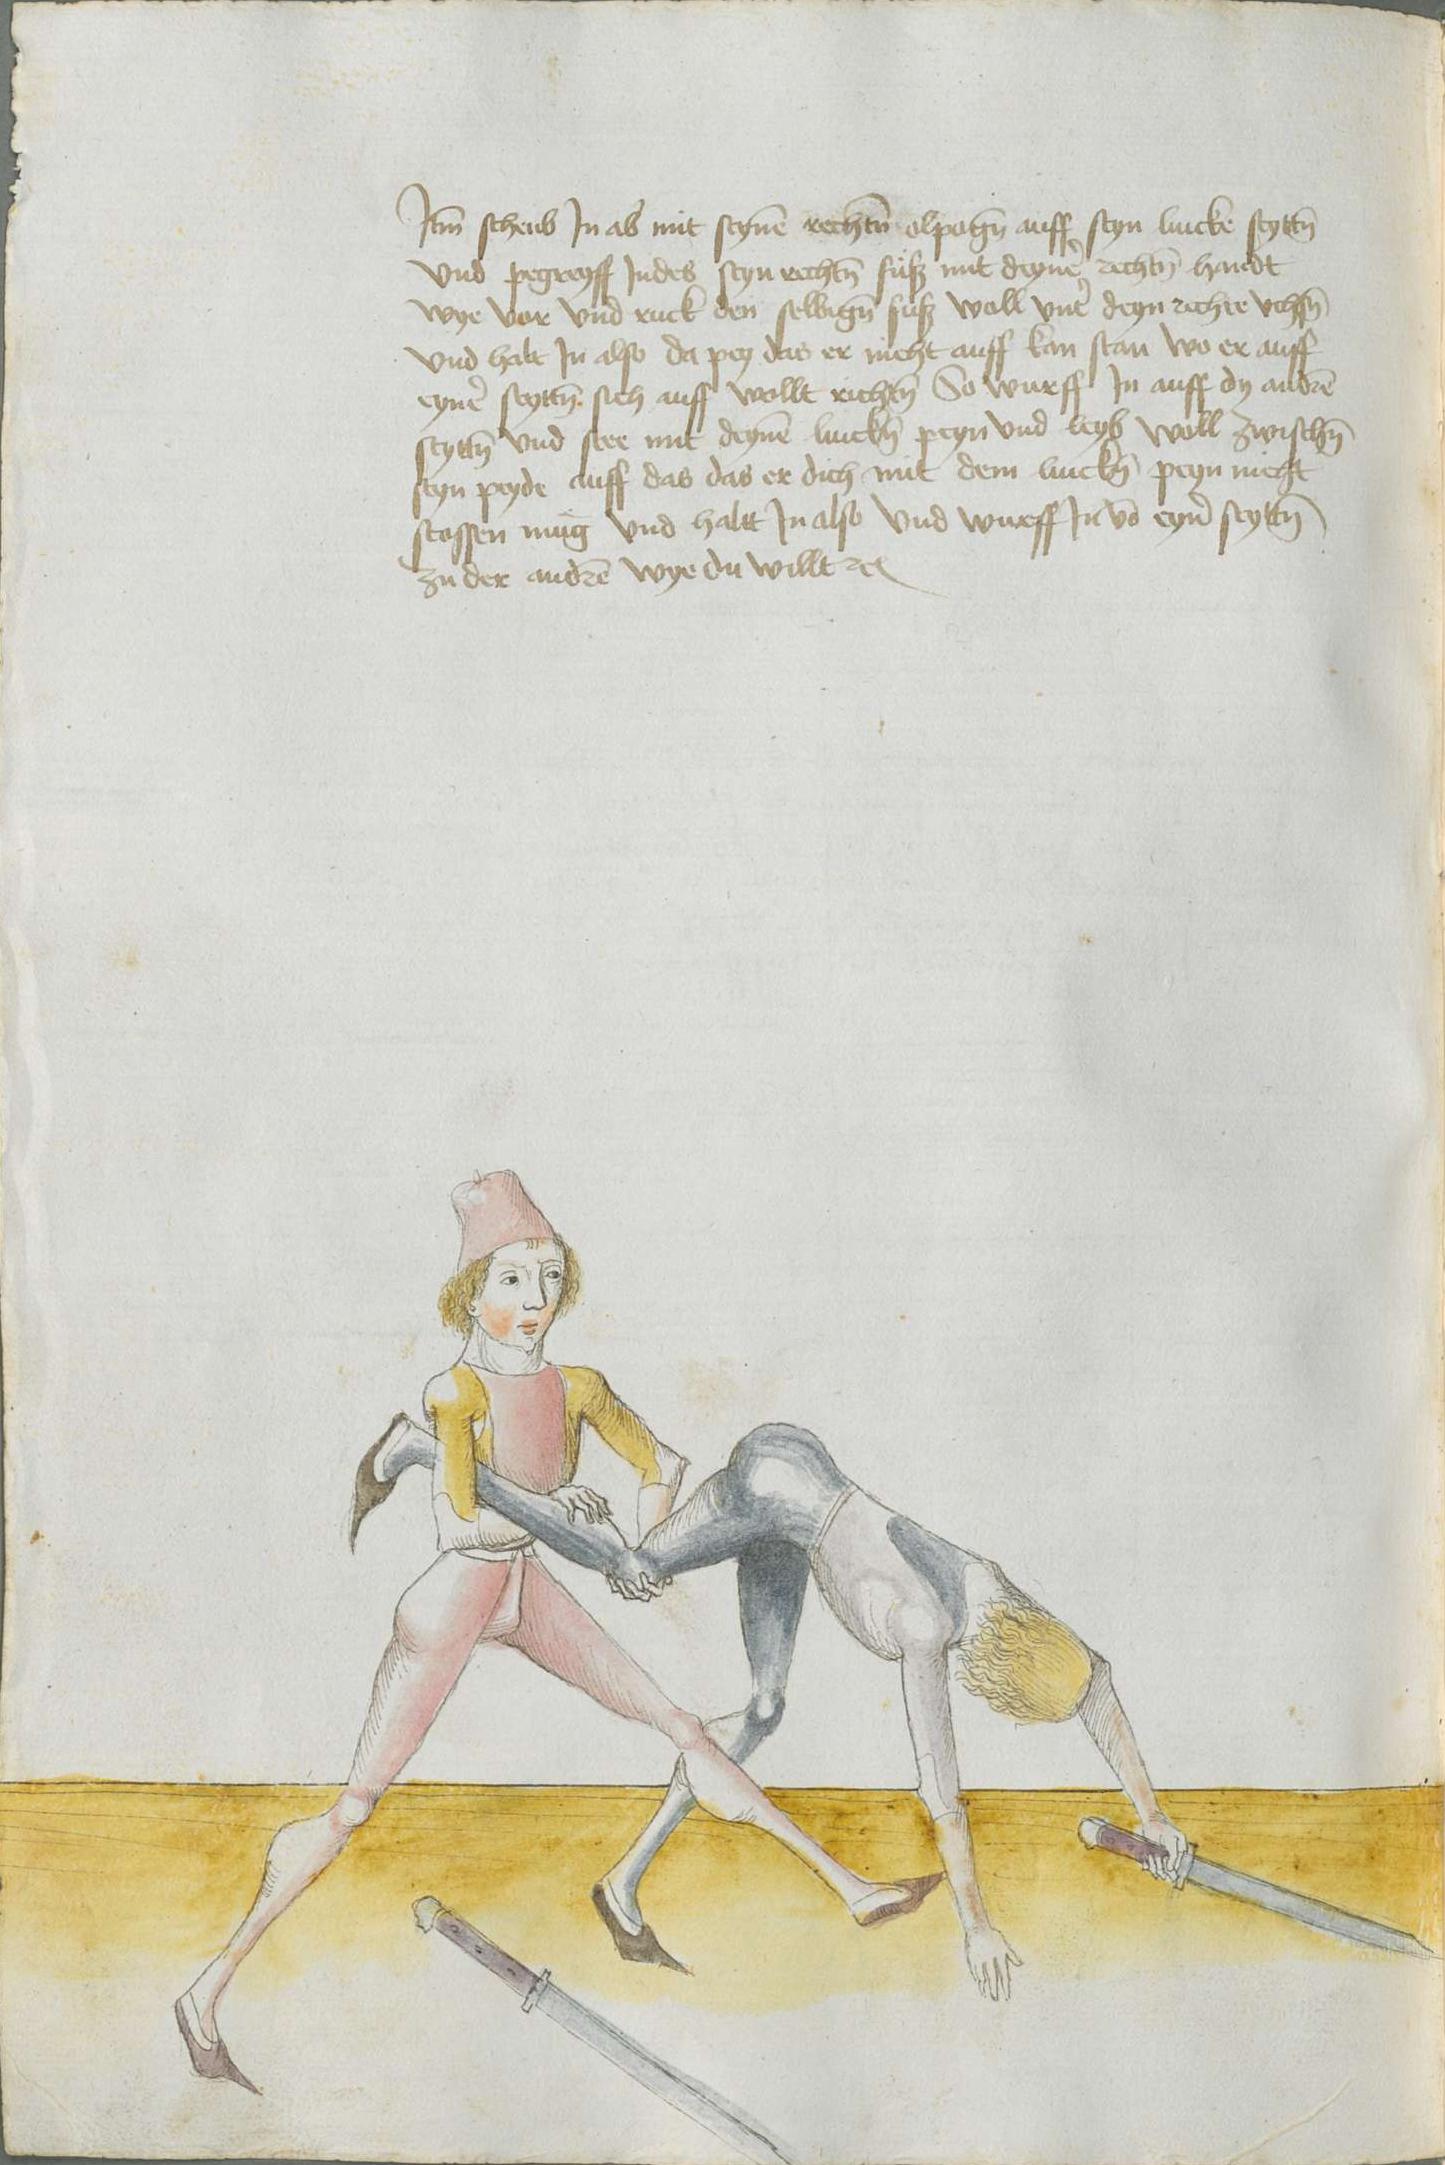 Itm̄ scheub In ab mit seynē rechtn̄ elpogn̄ auff seyn lincke seyttn̄
vnd pegreyff Indes seyn rechtn̄ fůß mit deynē rechtn̄ handt
wye vor vnd ruck den selbign̄ fuß woll vntē deyn rechte vchsn̄
vnd halt In also da pey das er nicht auff kan stan wo er auff
eynē seyttn̄ sich auff wollt richtn̄ So wurff In auff dy andrē
seyttn̄ vnd stee mit deynē linckn̄ peyn vnd leyb woll zwischn̄
seyn peyde auff das das er dich mit dem linckn̄ peyn nicht
stossen můg vnd haltt In also vnd wurff In vō eynē seyttn̄
zu der andrē wye du willt ꝛc